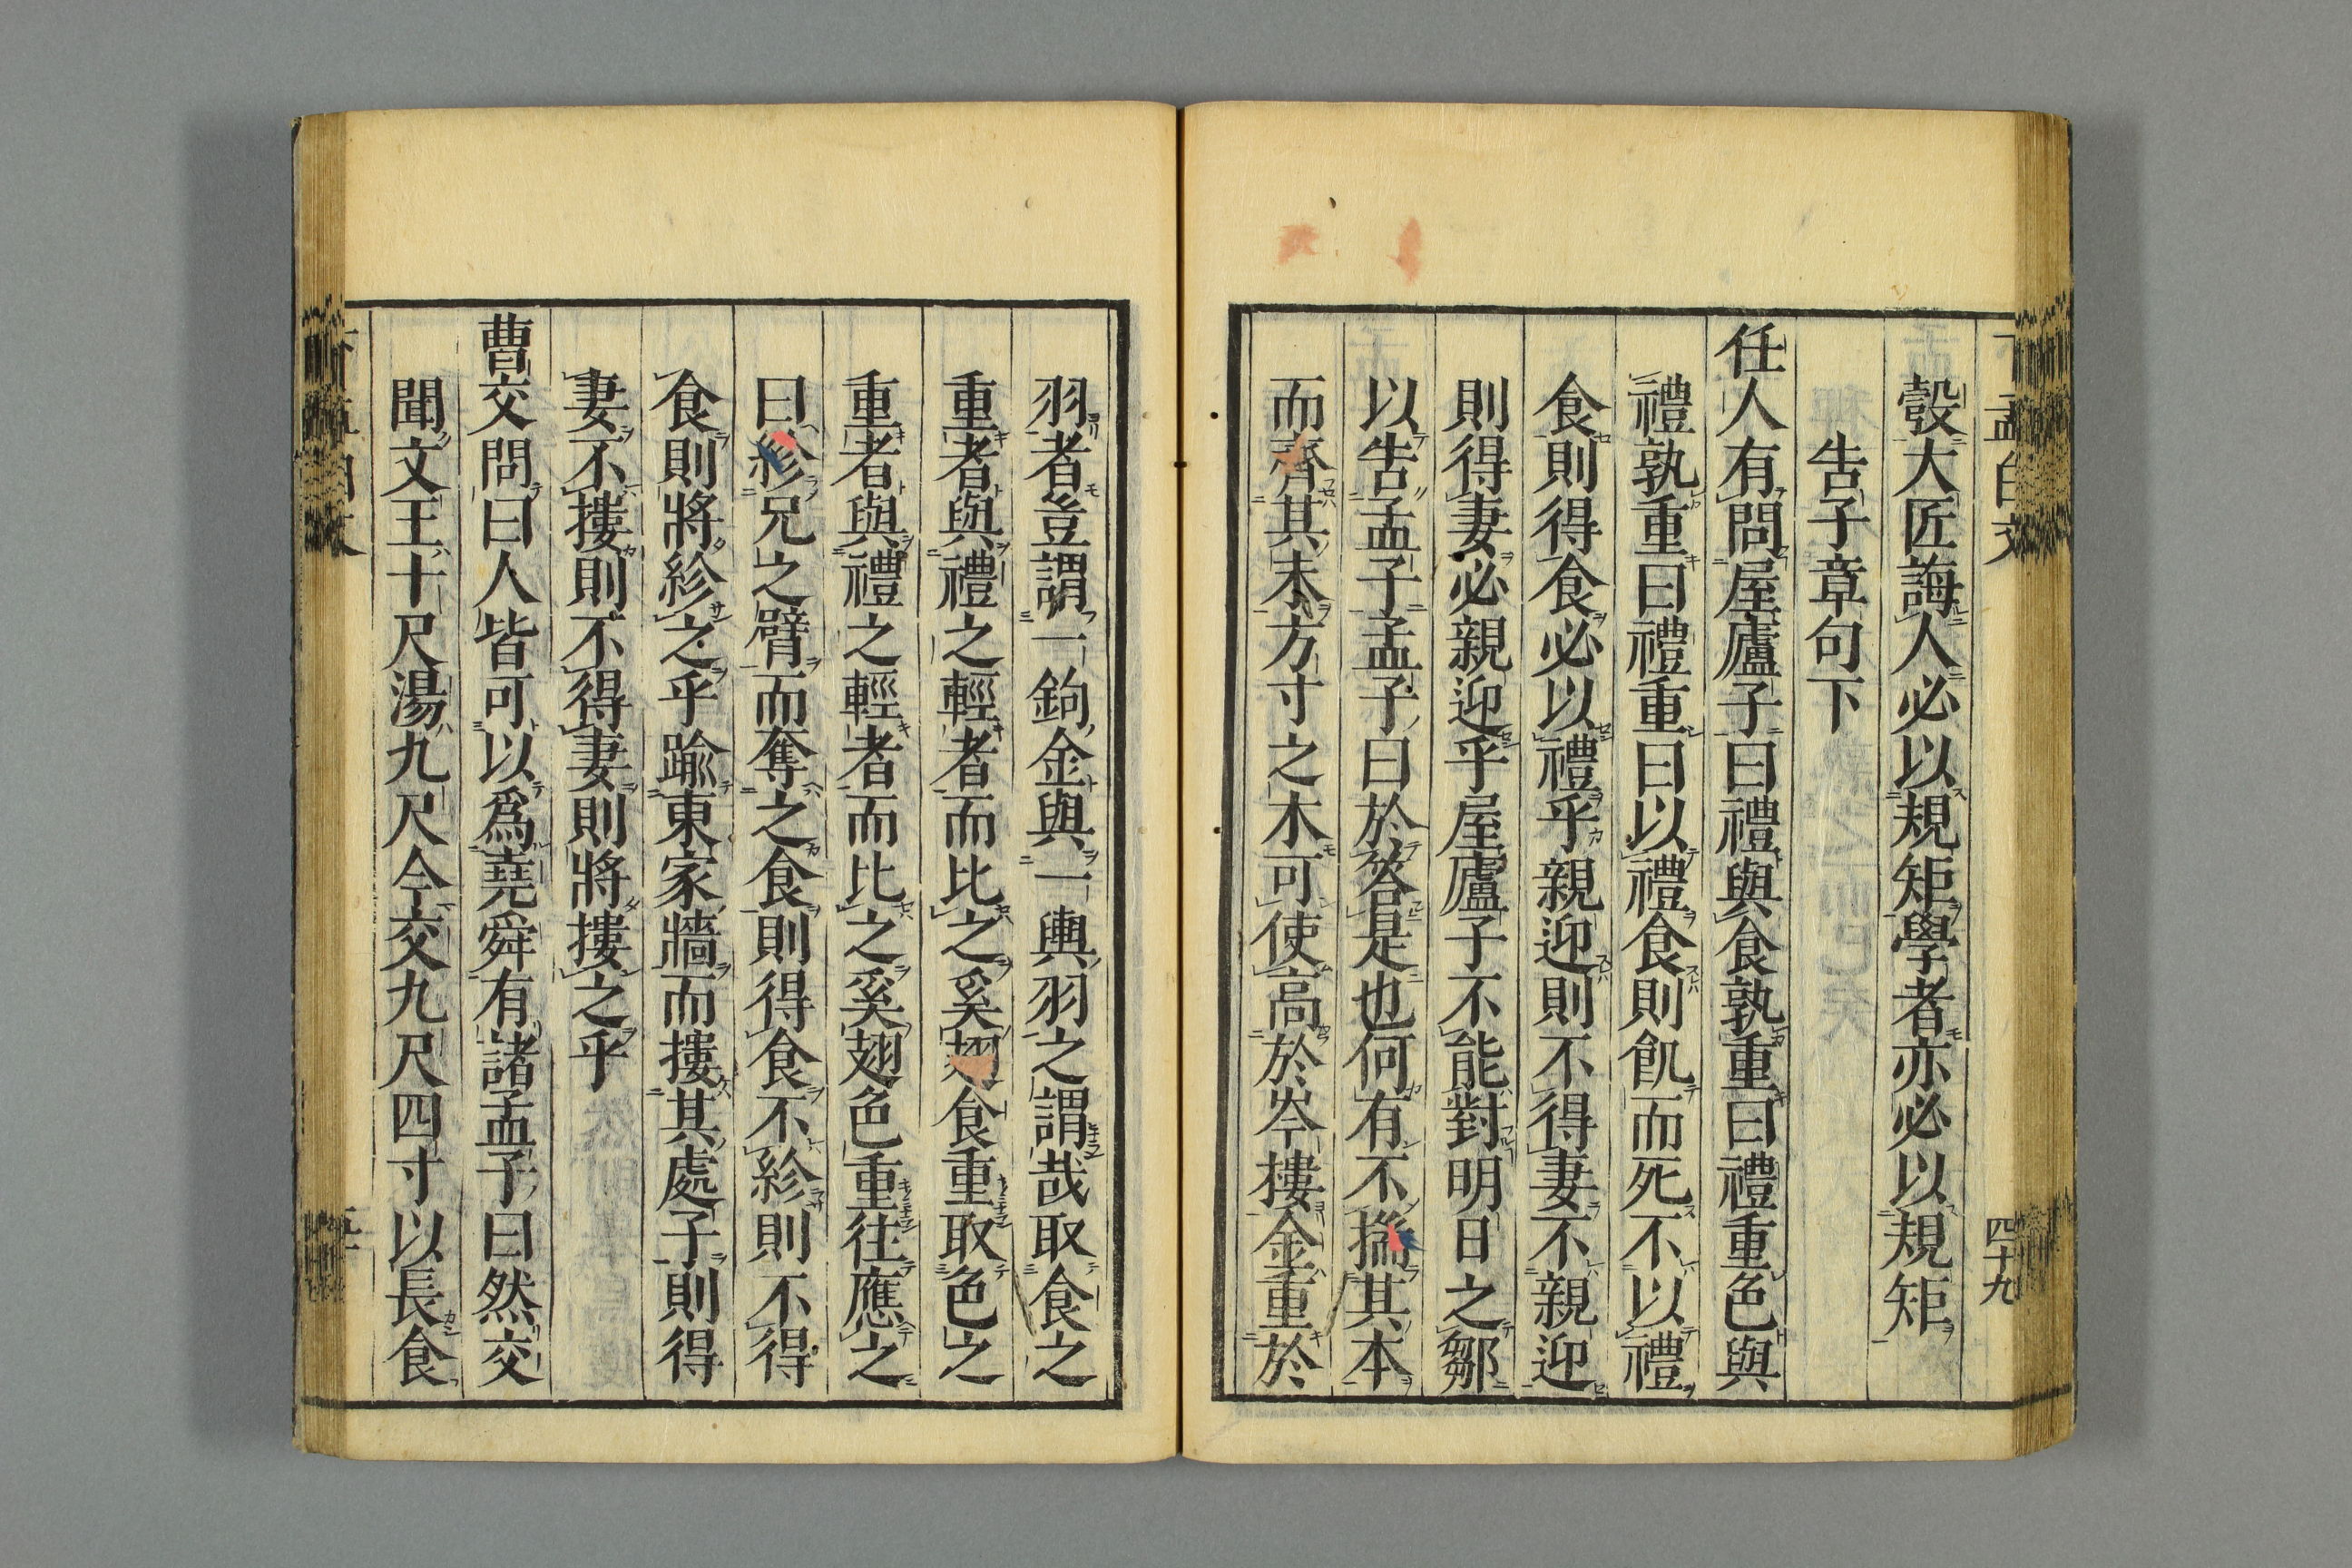 彀大匠誨人必以規矩學者亦必以規矩
告子章句下
任人有問屋廬子曰禮與食孰重曰禮重色與
禮孰重曰禮重曰以禮食則飢而死不以禮
食則得食必以禮乎親迎則不得妻不親迎
則得妻必親迎乎屋廬子不能對明日之鄒
以告孟子孟子曰於答是也何有不揣其本
而齊其末方寸之木可使高於岑樓金重於
四十九
羽者豈謂一鉤金與一輿羽之謂哉取食之
重者與禮之輕者而比之奚翅食重取色之
重者與禮之輕者而比之奚翅色重往應之
曰紾兄之臂而奪之食則得食不紾則不得
食則將紾之乎踰東家牆而摟其處子則得
妻不摟則不得妻則將摟之乎
曹交問曰人皆可以爲堯舜有諸孟子曰然交
聞文王十尺湯九尺今交九尺四寸以長食